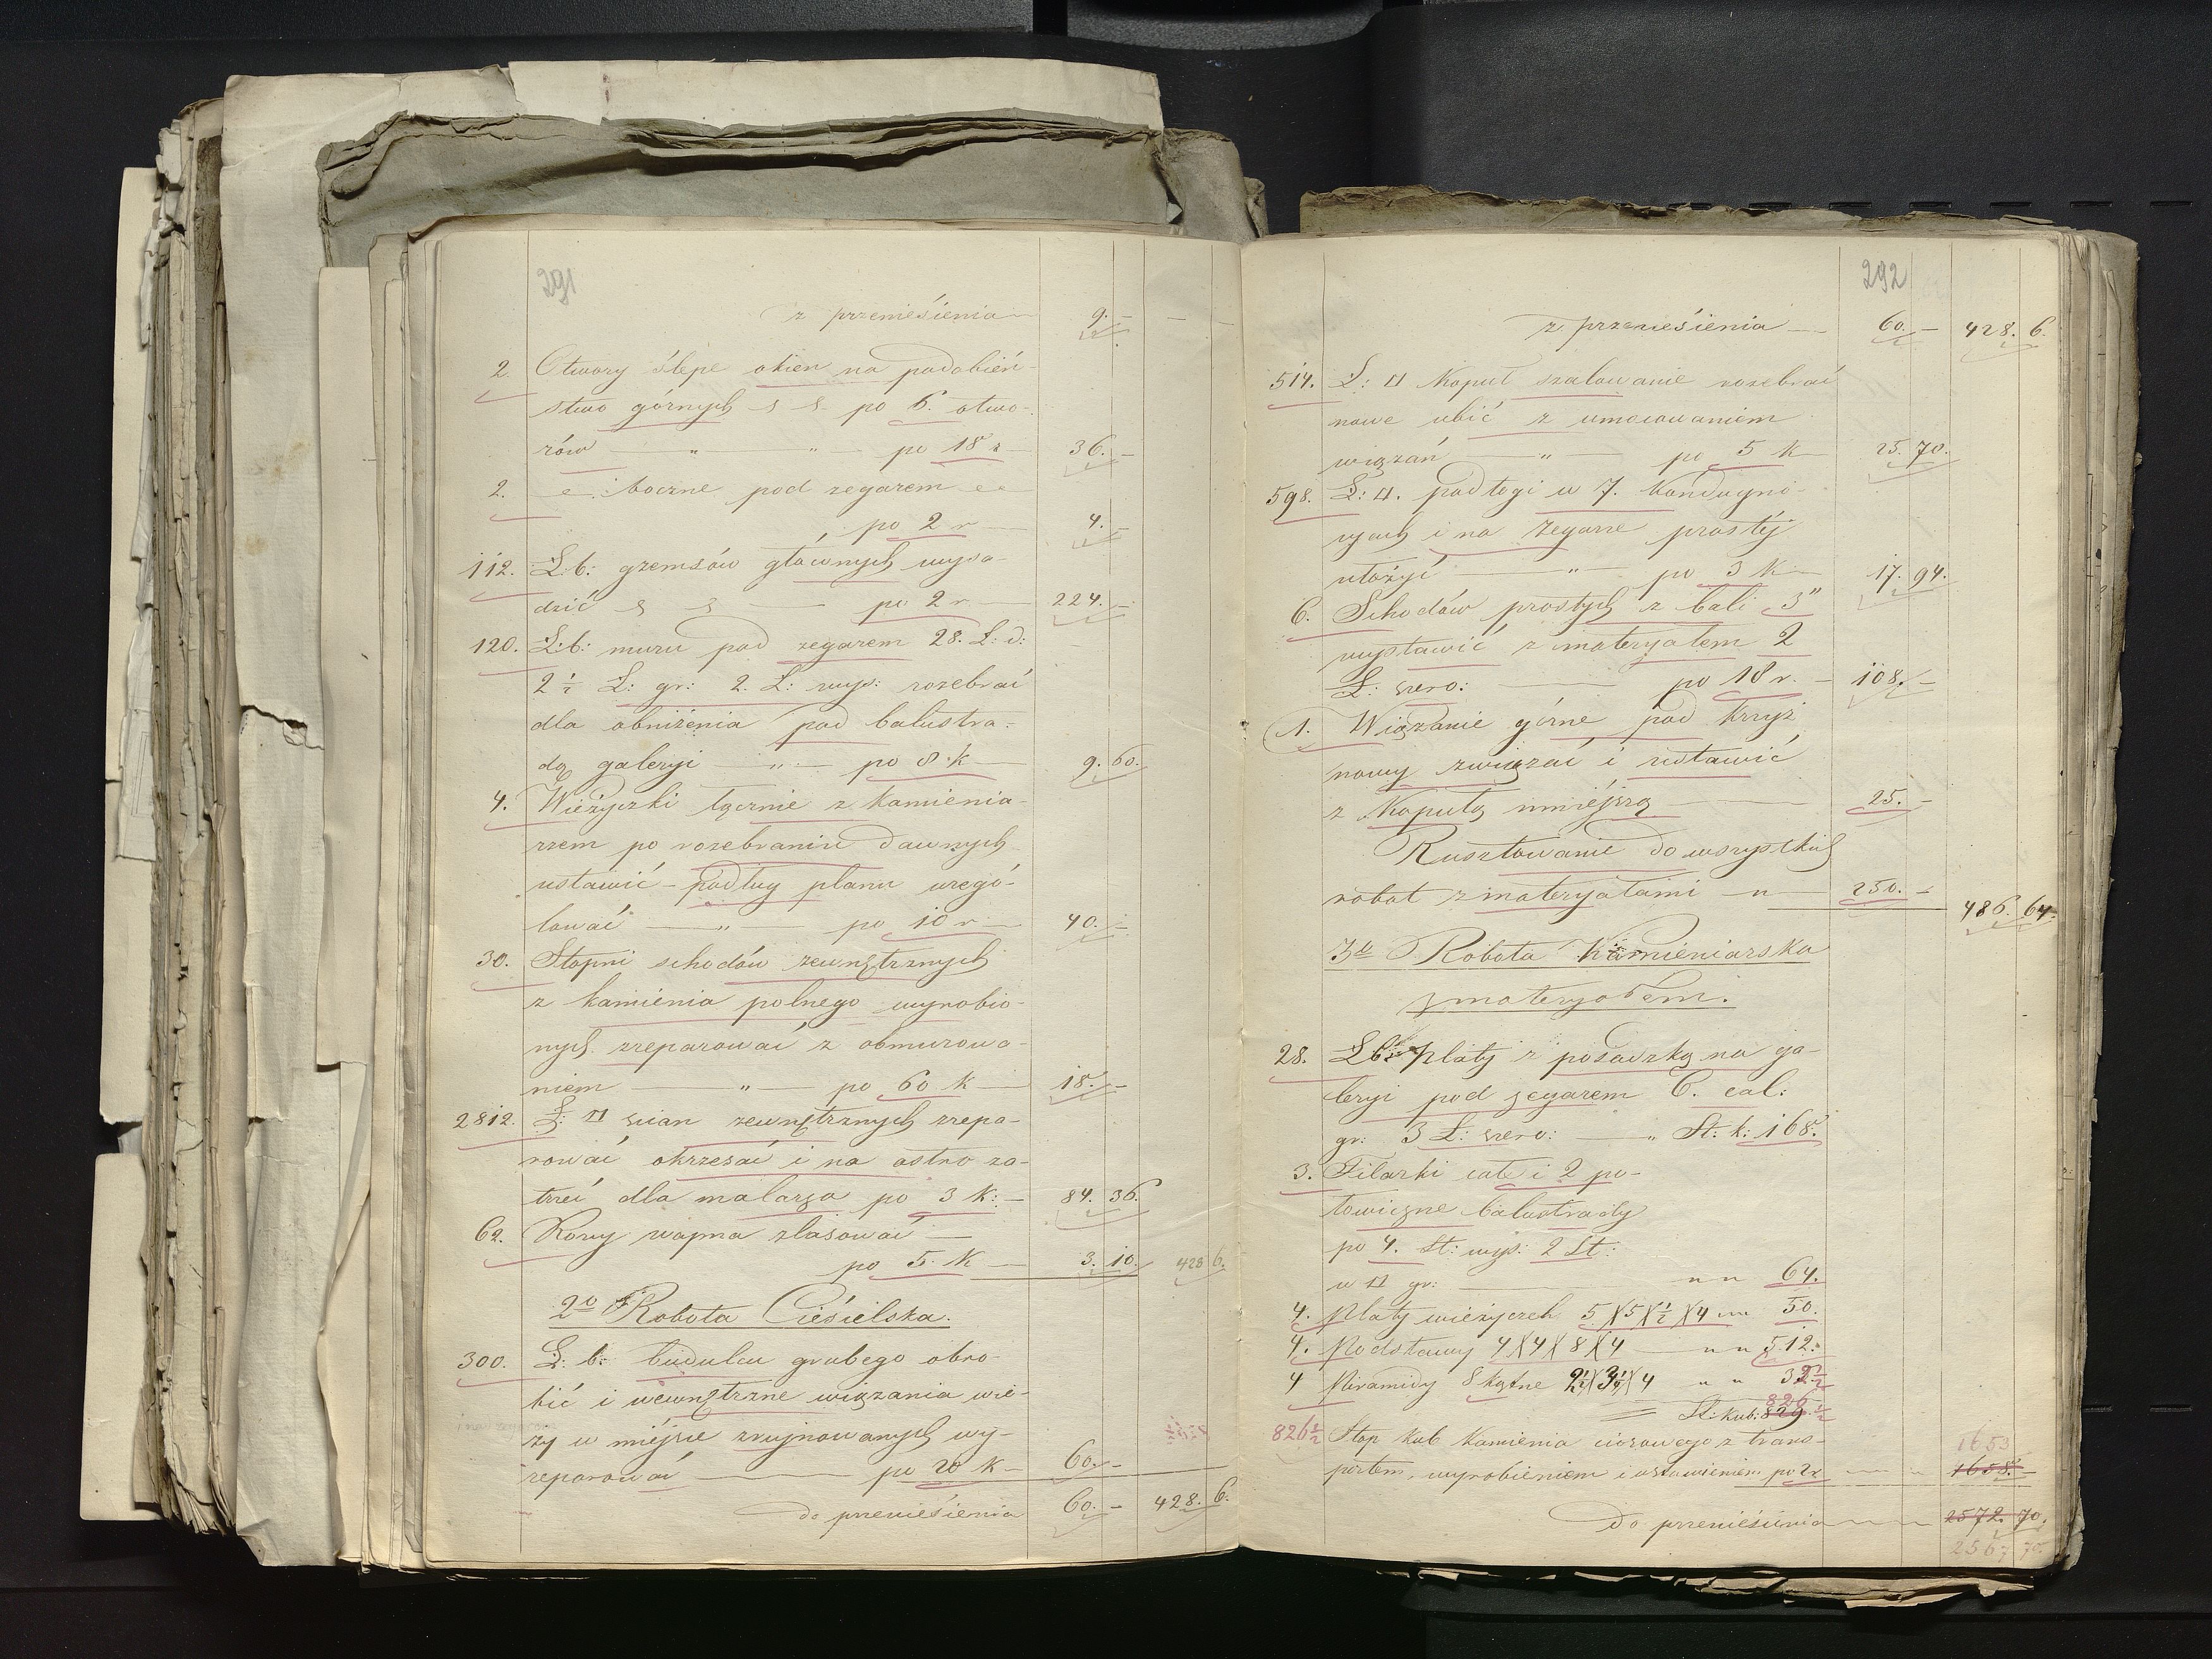 291
z przeniesienia 9. –
2. Otwory ślepe okien na podobień-
stwo górnych po 6. otwo-
rów — " — " — po 18 r 36. –
2. boczne pod zegarem
po 2 r 4. –
112. Ł: b: gzemsów głównych wysa-
dzić — po 2 r 224. –
120. Ł: b: muru pod zegarem 28. Ł: d:
2 1/2 Ł: gr: 2. Ł: wys: rozebrać
dla obniżenia pod balustra-
dą galeryi — " — po 8 k 9. 60.
4. Wieżyczki łącznie z kamienia-
rzem po rozebraniu dawnych
ustawić – podług planu uregó-
lować — " — po 10 r 40. –
30. Stopni schodów zewnętrznych
z kamienia polnego wyrobio-
nych zreparować z obmurowa-
niem — " — po 60 k 18. –
2812. Ł: □ ścian zewnętrznych zrepa-
rować okrzesać i na ostro za-
trzeć dla malarza po 3 k: – 84. 36.
62. Kory wapna zlasować —
po 5. k — 3. 10. 428 6.
2o Robota Ciesielska.
300. Ł: b: budulcu grubego obro-
bić i wewnętrzne wiązania wie-
ży w miejsce zrujnowanych wy-
reparować — po 20 k – 60. –
do przeniesienia 60. – 428. 6.
292
z przeniesienia — 60. – 428. 6.
514. Ł: □ Kopuł szalowanie rozebrać
nowe ubić z umocowaniem
wiązań — " — po 5 k 25. 70.
598. Ł: □. podłogi w 7. kondygna-
cyach i na zegarze prostéj
ułożyć — " — po 3 k 17. 94.
6. Schodów prostych z bali 3"
wystawić z materyałem 2
Ł: szero: — po 18 r. – 108. –
1. Wiązanie górne pod krzyż
nowy związać i ustawić
z kopułą mniejszą — 25. –
Rusztowanie do wszystkich
robot z materyałami — " — 250. – 486. 64.
3o Robota Kamieniarska
z materyałem.
28. Ł b: płaty z posadzką na ga-
leryi pod zegarem 6. cal:
gr: 3 Ł: szero: — " St: k: 168.
3. Filarki całe i 2 po-
łowiczne balustrady
po 4. St: wys: 2 St:
w □ gr: — " " 64.
4. Płaty wieżyczek 5 X 5 X 1/2 X 4 " " 50.
4. Podstawy 4 X 4 X 8 X 4 — " " 512.
4 Piramidy 8 kątne 2 1/2 X 3 1/2 X 4 " " 32 1/2
St: kub: 829. 826 1/2
826 1/2 Stop kub kamienia ciosowego z trans-
portem, wyrobieniem i ustawieniem po 2 r — 1658. –
1653
do przeniesienia — 2572. 70.
2567 70.